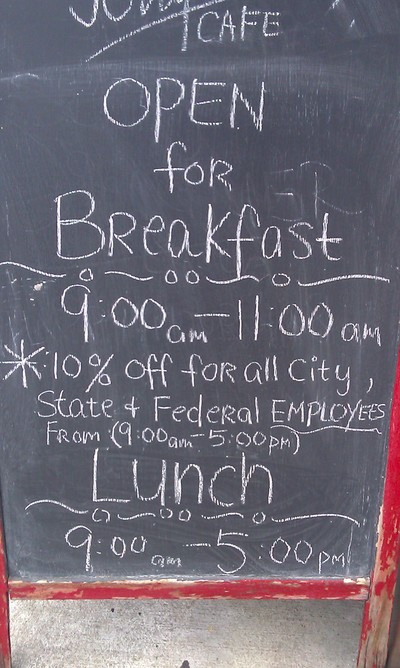 CAFE
OPEN
for
Breakfast
9:00am-11:00 am
*:10% off for all City,
State & Federal EMPLOYEES
From:(9:00am-5:00pm)
Lunch
9:00am-5:00pm